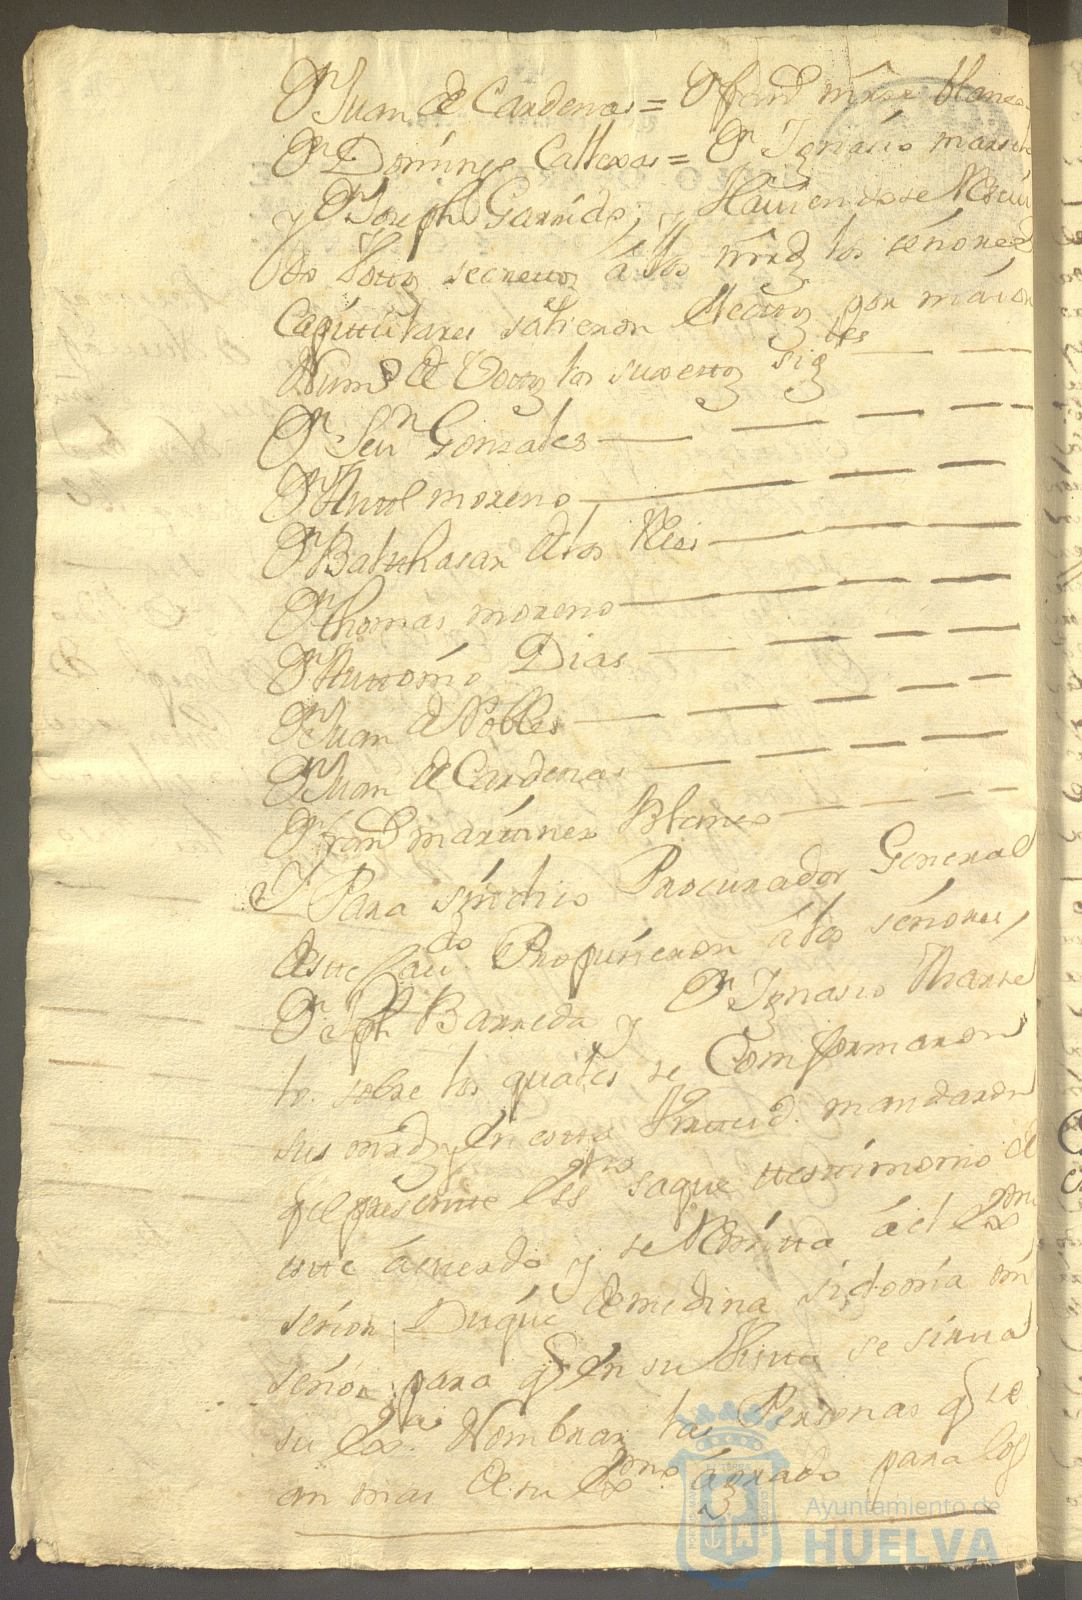 Dn Juan de Cardenas = Dn franco mrnes blanco
Dn Domingo Callexas = Dn Ignasio marsel
y Dn Joseph Garrido, y Hauiendose Resiui
do Vottos secrettos á dhos mrds los señores
Capittulares salieron electtos por maior
Numo de Vottos los suxettos sigtes
Dn Seun Gonzales
Dn Xptoul moreno
Dn Balthasar de los Reies
Dn thomas moreno
Dn Anttonio Dias
Dn Juan de Robles
Dn Juan de Cardenas
Dn franco marttines Blanco
Y Para sindico Procurador General
deste Caudo Propusieron á los señores,
Dn Jph Barreda y Dn Ignasio Marse
lo. sobre los quales se Comformaron
sus mrds y en esta Virttud. mandaron
qe el presentte esno saque testtimonio de
este ácuerdo y se Remitta ál exmo
señor Duque de medina sidonia mi
señor para q en su Vistta se sirua
su exa. Nombrar las Personas q se
an mas de su exmo. ágrado para los
Ayuntamiento de
HUELVA